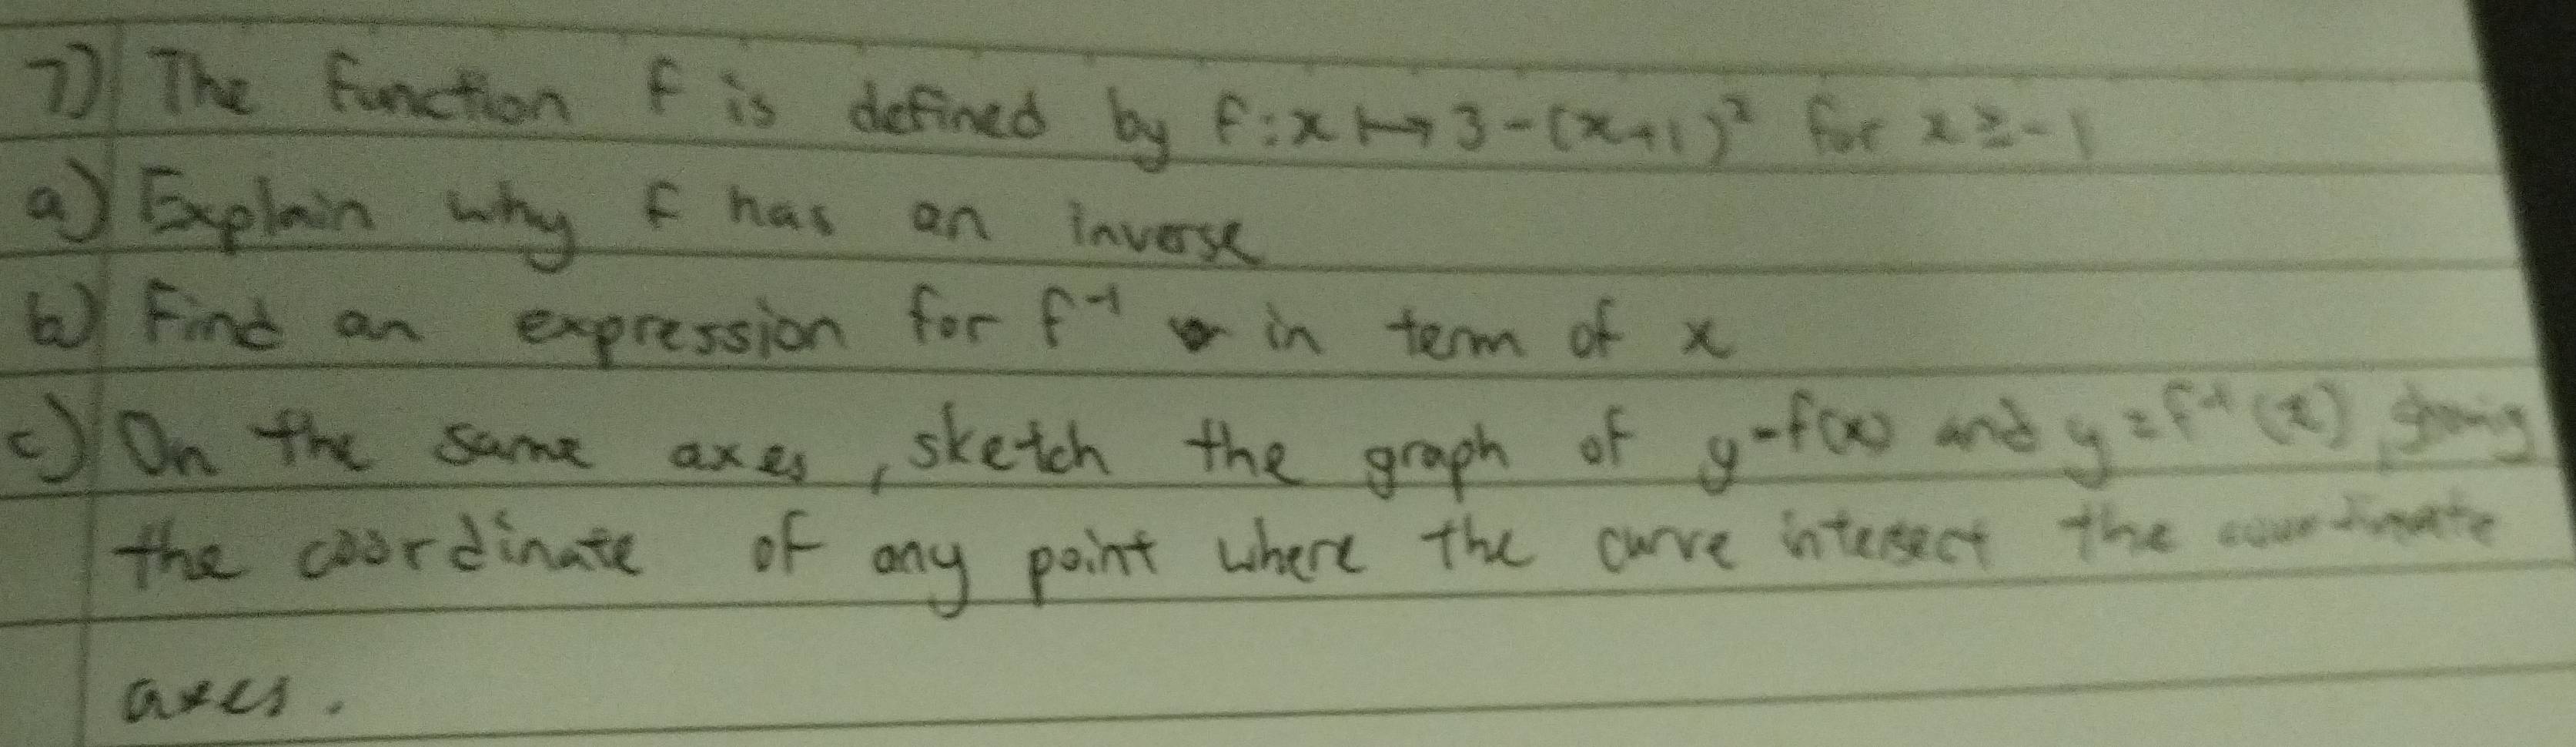 7) The function f is defined by f:x↦3-(x+1)² for x≥-1
a) Explain why f has an inverse
b) Find an expression for f⁻¹ in term of x
c) On the same axes, sketch the graph of y=f(x) and y=f⁻¹(x)
the coordinate of any point where the curve intersect the coordinate
axes.